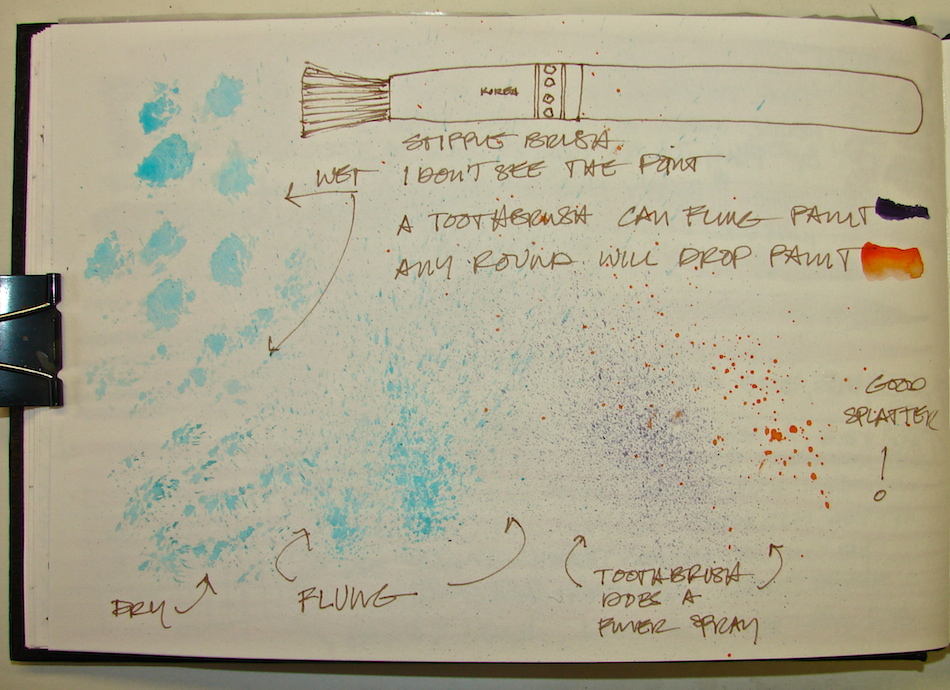 KOREA
STIPPLE BRUSH
I DON'T SEE THE POINT
WET
A TOOTHBRUSH CAN FLING PAINT
ANY ROUND WILL DROP PAINT
GOOD
SPLATTER
!
DRY
FLUNG
TOOTHBRUSH
DOES A
FINER SPRAY